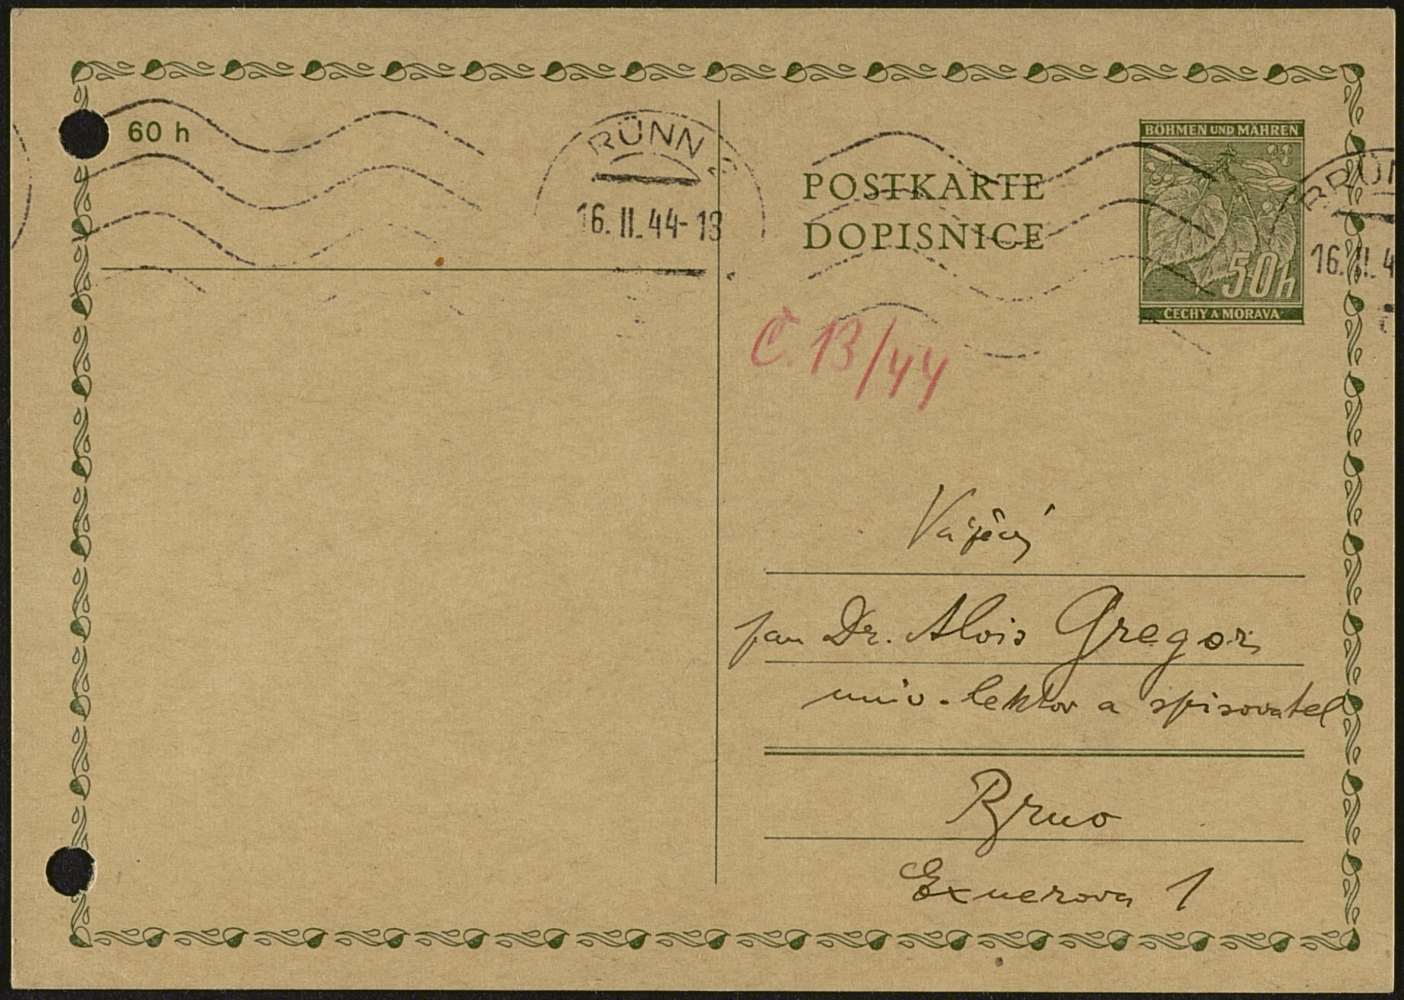 60 h
RÜNN 2
16. II. 44-18
POSTKARTE
DOPISNICE
BÖHMEN UND MÄHREN
50h
ČECHY A MORAVA
BRÜN
16. II. 4
Č. 13/44
Vážený
pan Dr. Alois Gregor
univ. lektor a spisovatel
Brno
Exnerova 1